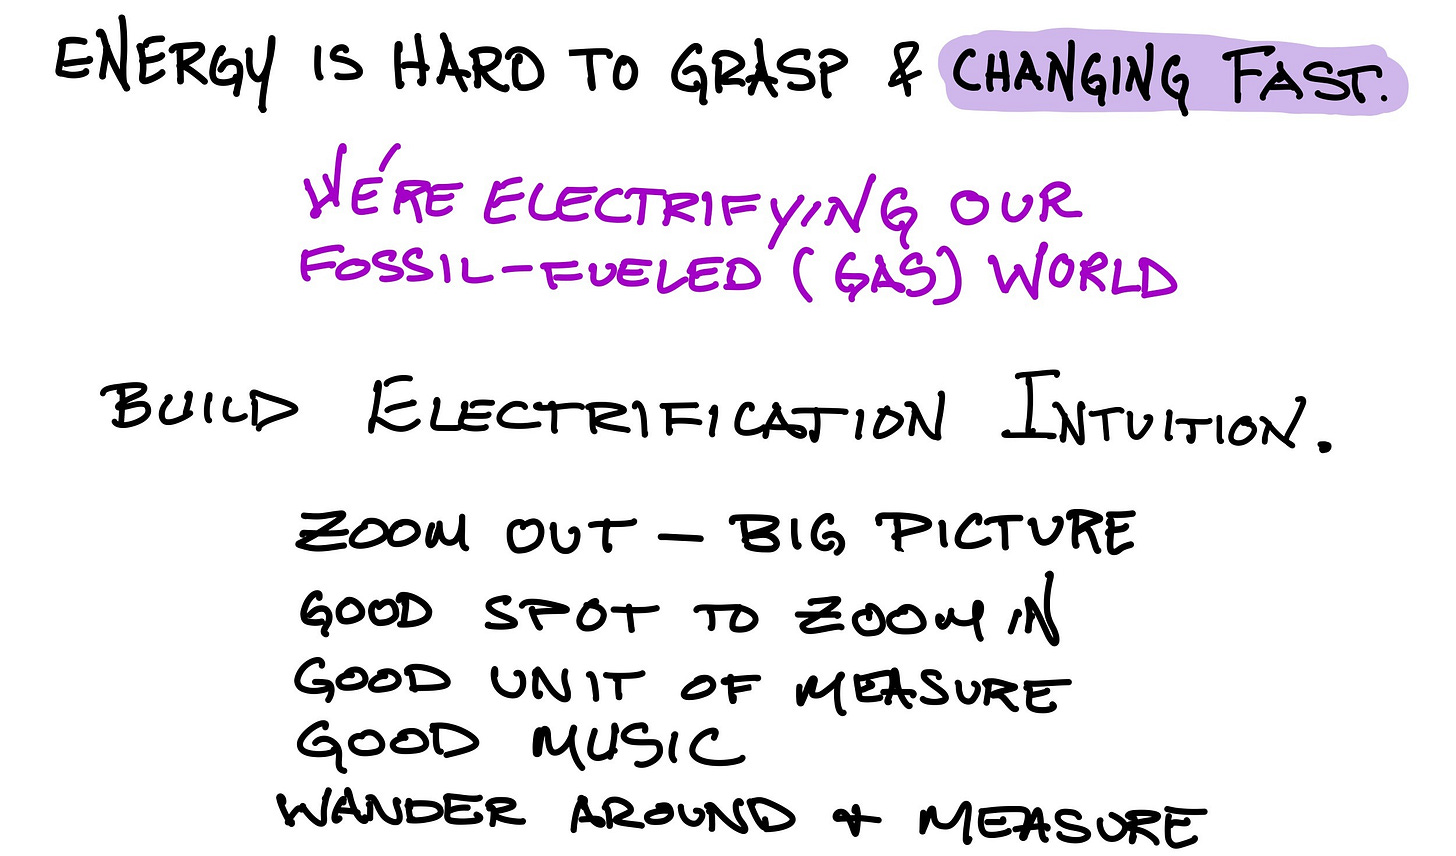 ENERGY IS HARD TO GRASP & CHANGING FAST.
WE'RE ELECTRIFYING OUR
FOSSIL-FUELED (GAS) WORLD
BUILD ELECTRIFICATION INTUITION.
ZOOM OUT — BIG PICTURE
GOOD SPOT TO ZOOM IN
GOOD UNIT OF MEASURE
GOOD MUSIC
WANDER AROUND + MEASURE